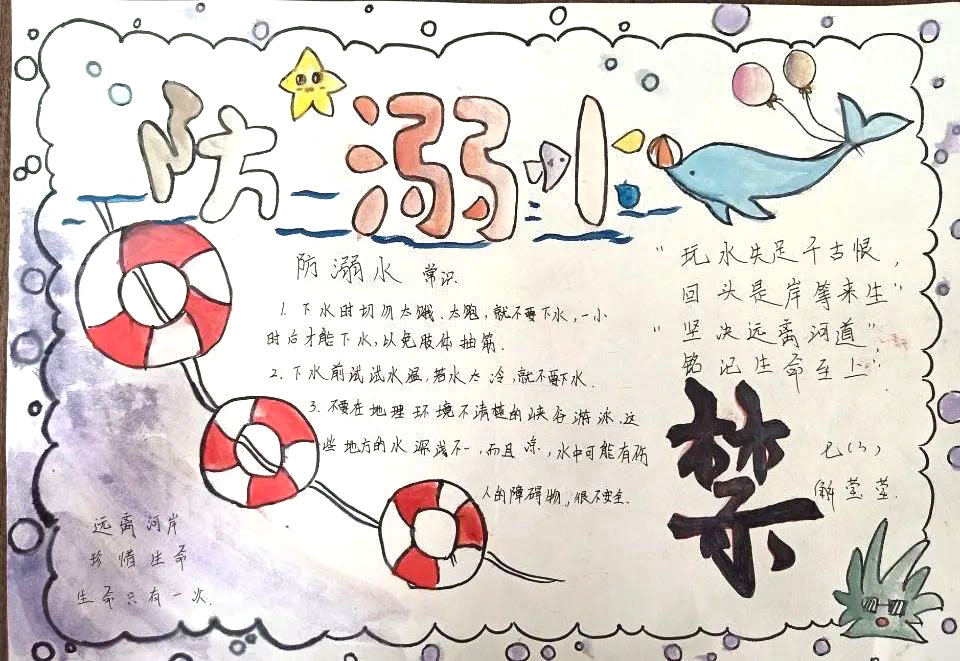 防溺水
防溺水 常识
1. 下水时切勿太饿、太饱,就不要下水,一小
时后才能下水,以免肢体抽筋.
2. 下水前试试水温,若水太冷,就不要下水.
3. 不要在地理环境不清楚的峡谷游泳.这
些地方的水深浅不一,而且凉,水中可能有伤
人的障碍物,很不安全.
“玩水失足千古恨,
回头是岸等来生”
“坚决远离河道”,
铭记生命至上”
禁
七(3)
解莹莹.
远离河岸
珍惜生命
生命只有一次.